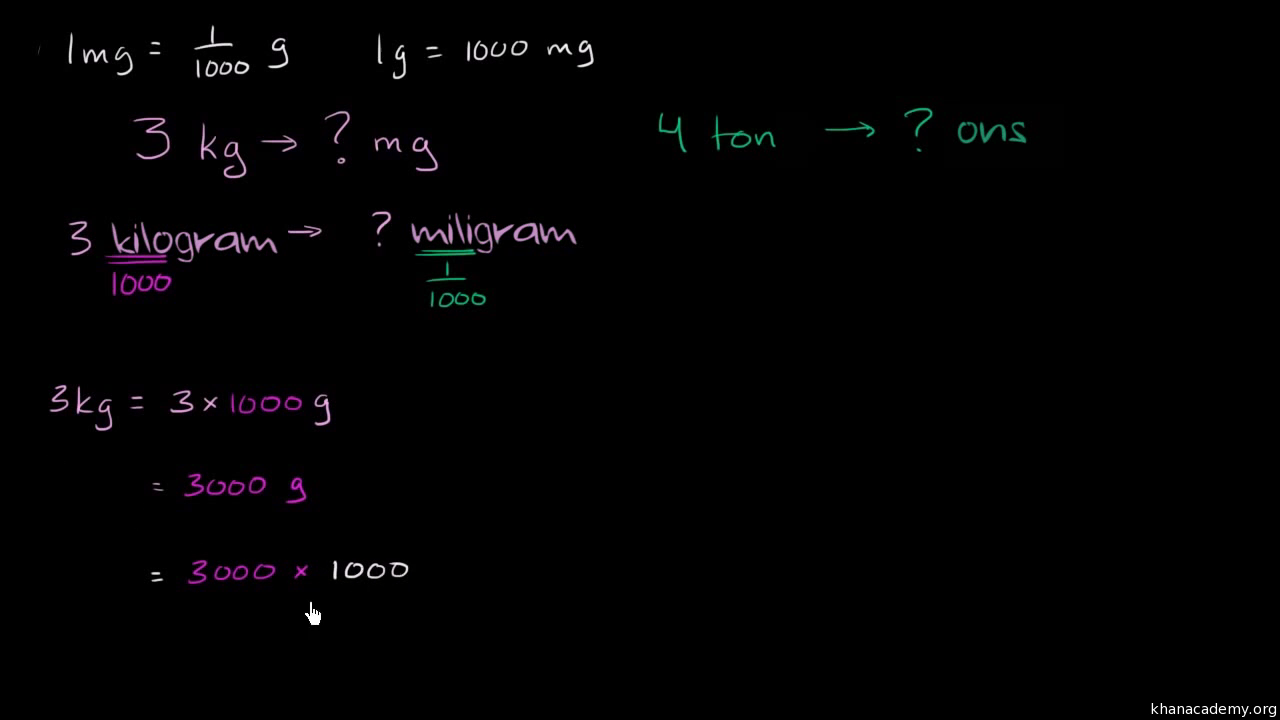 1mg = 1/1000 g 1g = 1000 mg
3 kg → ? mg 4 ton → ? ons
3 kilogram → ? miligram
1000 1/1000
3kg = 3 × 1000 g
= 3000 g
= 3000 × 1000
khanacademy.org